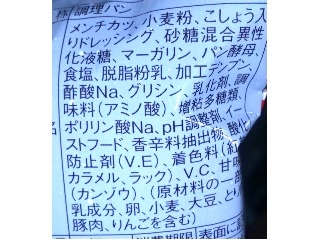 称 調理パン
メンチカツ、小麦粉、こしょう入
りドレッシング、砂糖混合異性
化液糖、マーガリン、パン酵母、
食塩、脱脂粉乳、加工デンプン、
酢酸Na、グリシン、乳化剤、調
味料(アミノ酸)、増粘多糖類、
名
ポリリン酸Na、pH調整剤、イー
ストフード、香辛料抽出物、酸化
防止剤(V.E)、着色料(紅
カラメル、ラック)、V.C、甘味
(カンゾウ)、(原材料の一部
乳成分、卵、小麦、大豆、とり
豚肉、りんごを含む)
消費期限 表面に記